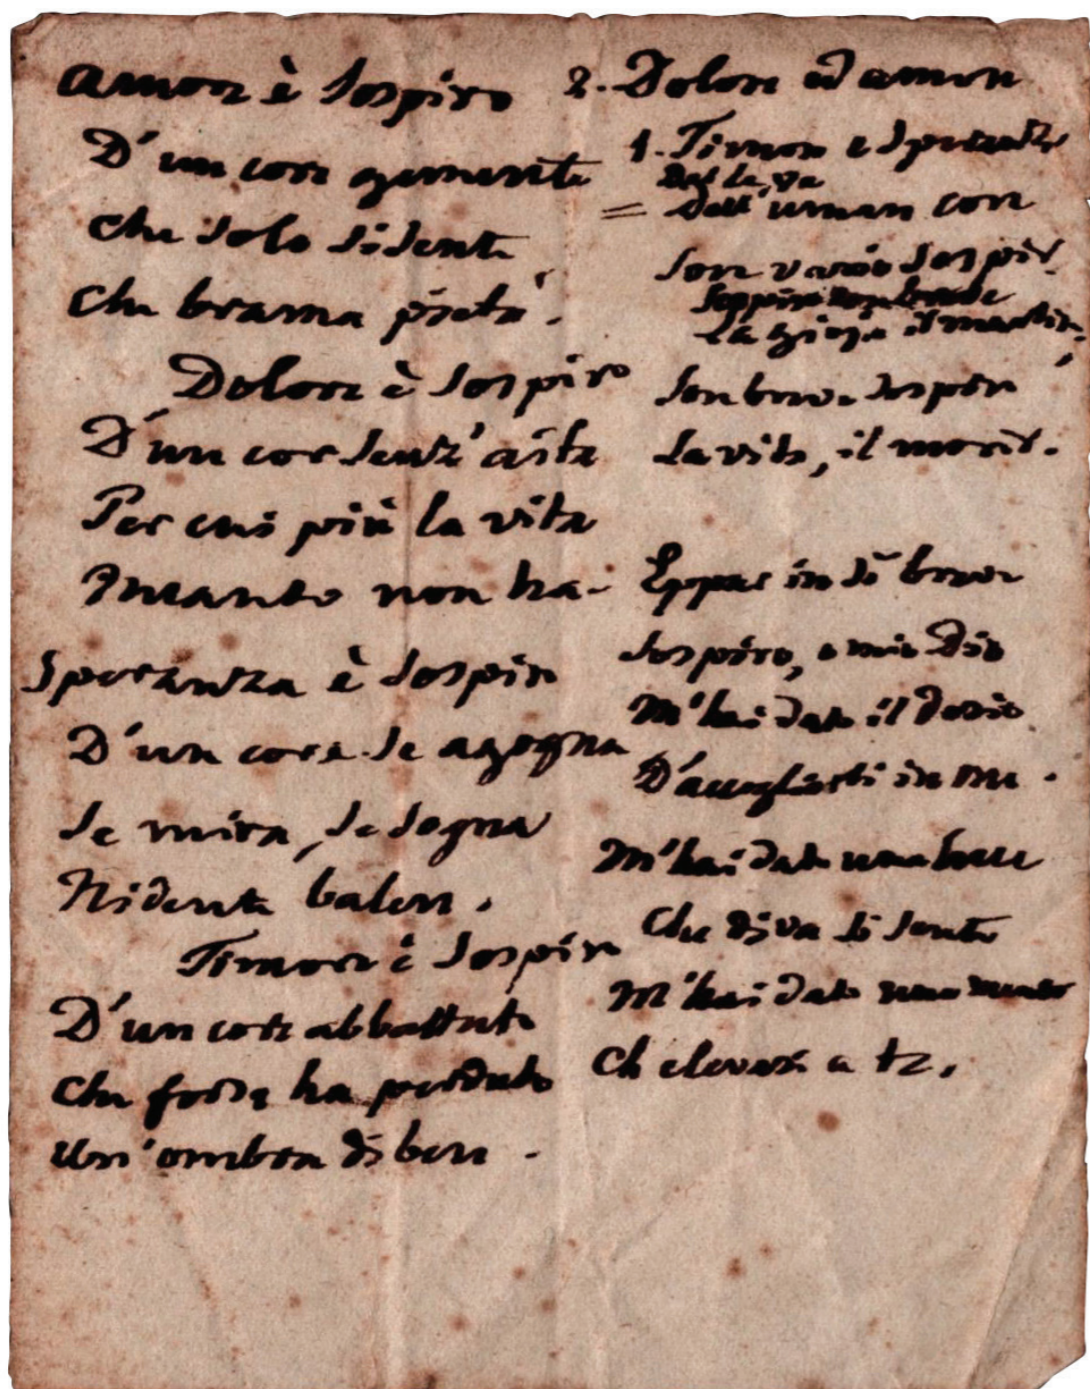 Amore è sospiro
D'un core gemente
Che solo si sente
Che brama pietà.
Dolore è sospiro
D'un cor senz'aita
Per cui più la vita
Incanto non ha.
Speranza è sospiro
D'un core se agogna
Se mira, se sogna
Ridente balen.
Timore è sospiro
D'un core abbattuto
Che forse ha perduto
Un'ombra di ben.
2. Dolore ed amore
1. Timore e speranza
= Dell'uman core
Son vario sospir.
La gioja il martir,
Son breve sospir
La vita, il morir.
Eppur in sì breve
Sospiro, o mio Dio
M'hai dato il desio
D'accoglierti in me.
M'hai dato una luce
Che diva si sente
M'hai dato una mente
Ch elevasi a te.